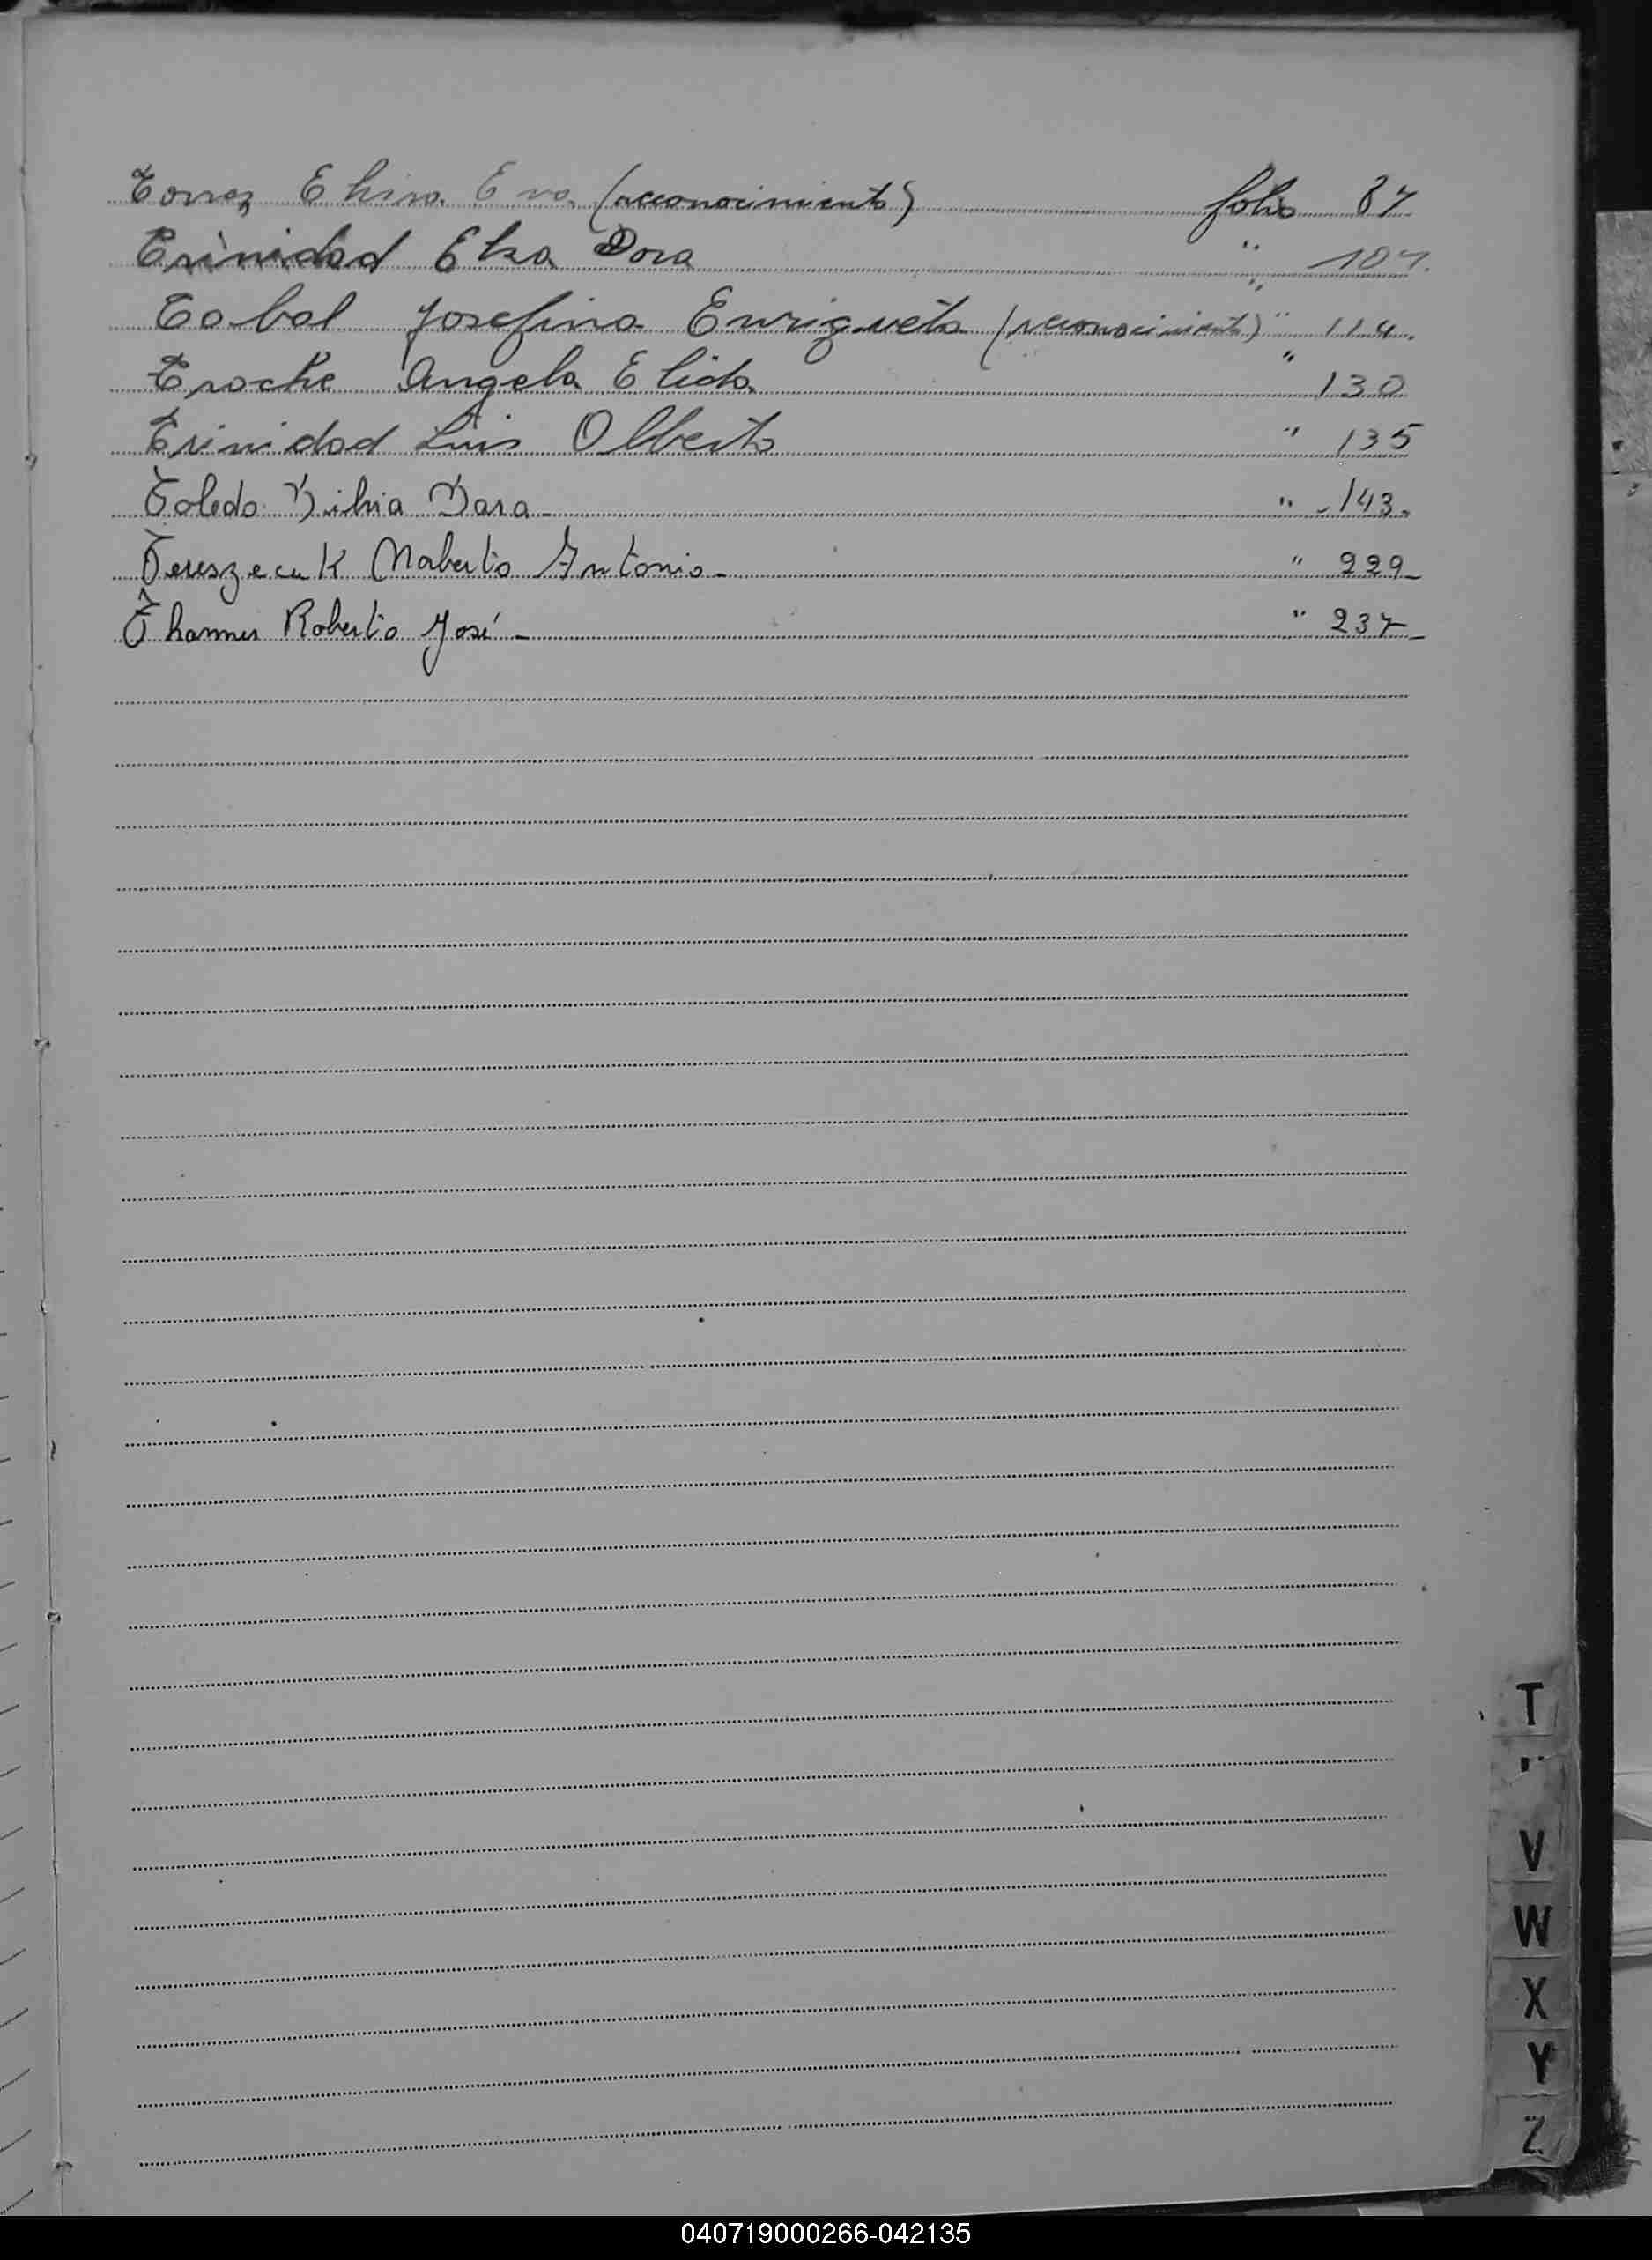 Torrez Elvira Eva (reconocimiento) folio 87
Trinidad Elsa Dora " 107.
Tobal Josefina Enriqueta (reconocimiento) " 114.
Troche Angela Elida " 130
Trinidad Luis Alberto " 135
Toledo Silvia Sara - " 143.
Tereszecuk Norberto Antonio - " 229-
Thames Roberto José - " 237-
T
V
W
X
Y
Z
040719000266-042135